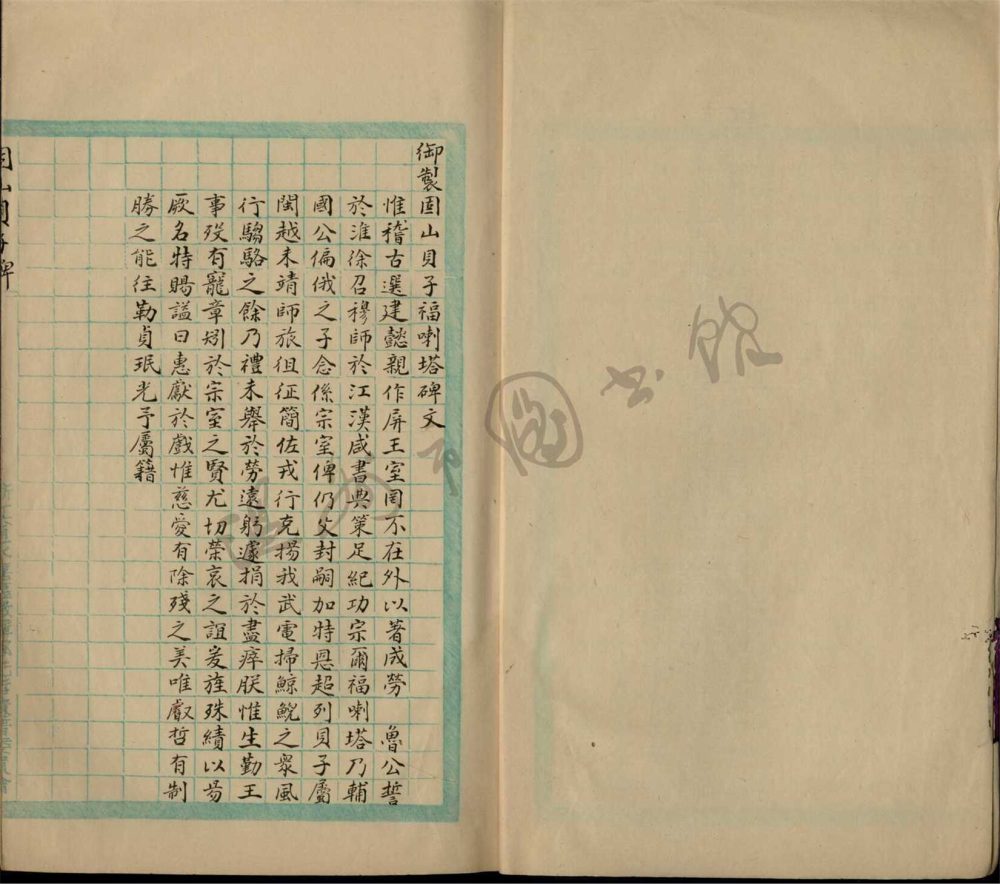 御製固山貝子福喇塔碑文
惟稽古選建懿親作屏王室罔不在外以著成勞　魯公誓
於淮徐召穆師於江漢咸書典策足紀功宗爾福喇塔乃輔
國公偏俄之子念係宗室俾仍父封嗣加特恩超列貝子屬
閩越未靖師旅徂征簡佐戎行克揚我武電掃鯨鯢之衆風
行騶駱之餘乃禮未舉於勞遠躬遽捐於盡瘁朕惟生勤王
事歿有寵章矧於宗室之賢尤切榮哀之誼爰旌殊績以昜
厥名特賜謚曰惠獻於戲惟慈愛有除殘之美唯叡哲有制
勝之能往勒貞珉光予屬籍
固山貝子碑
圖書館